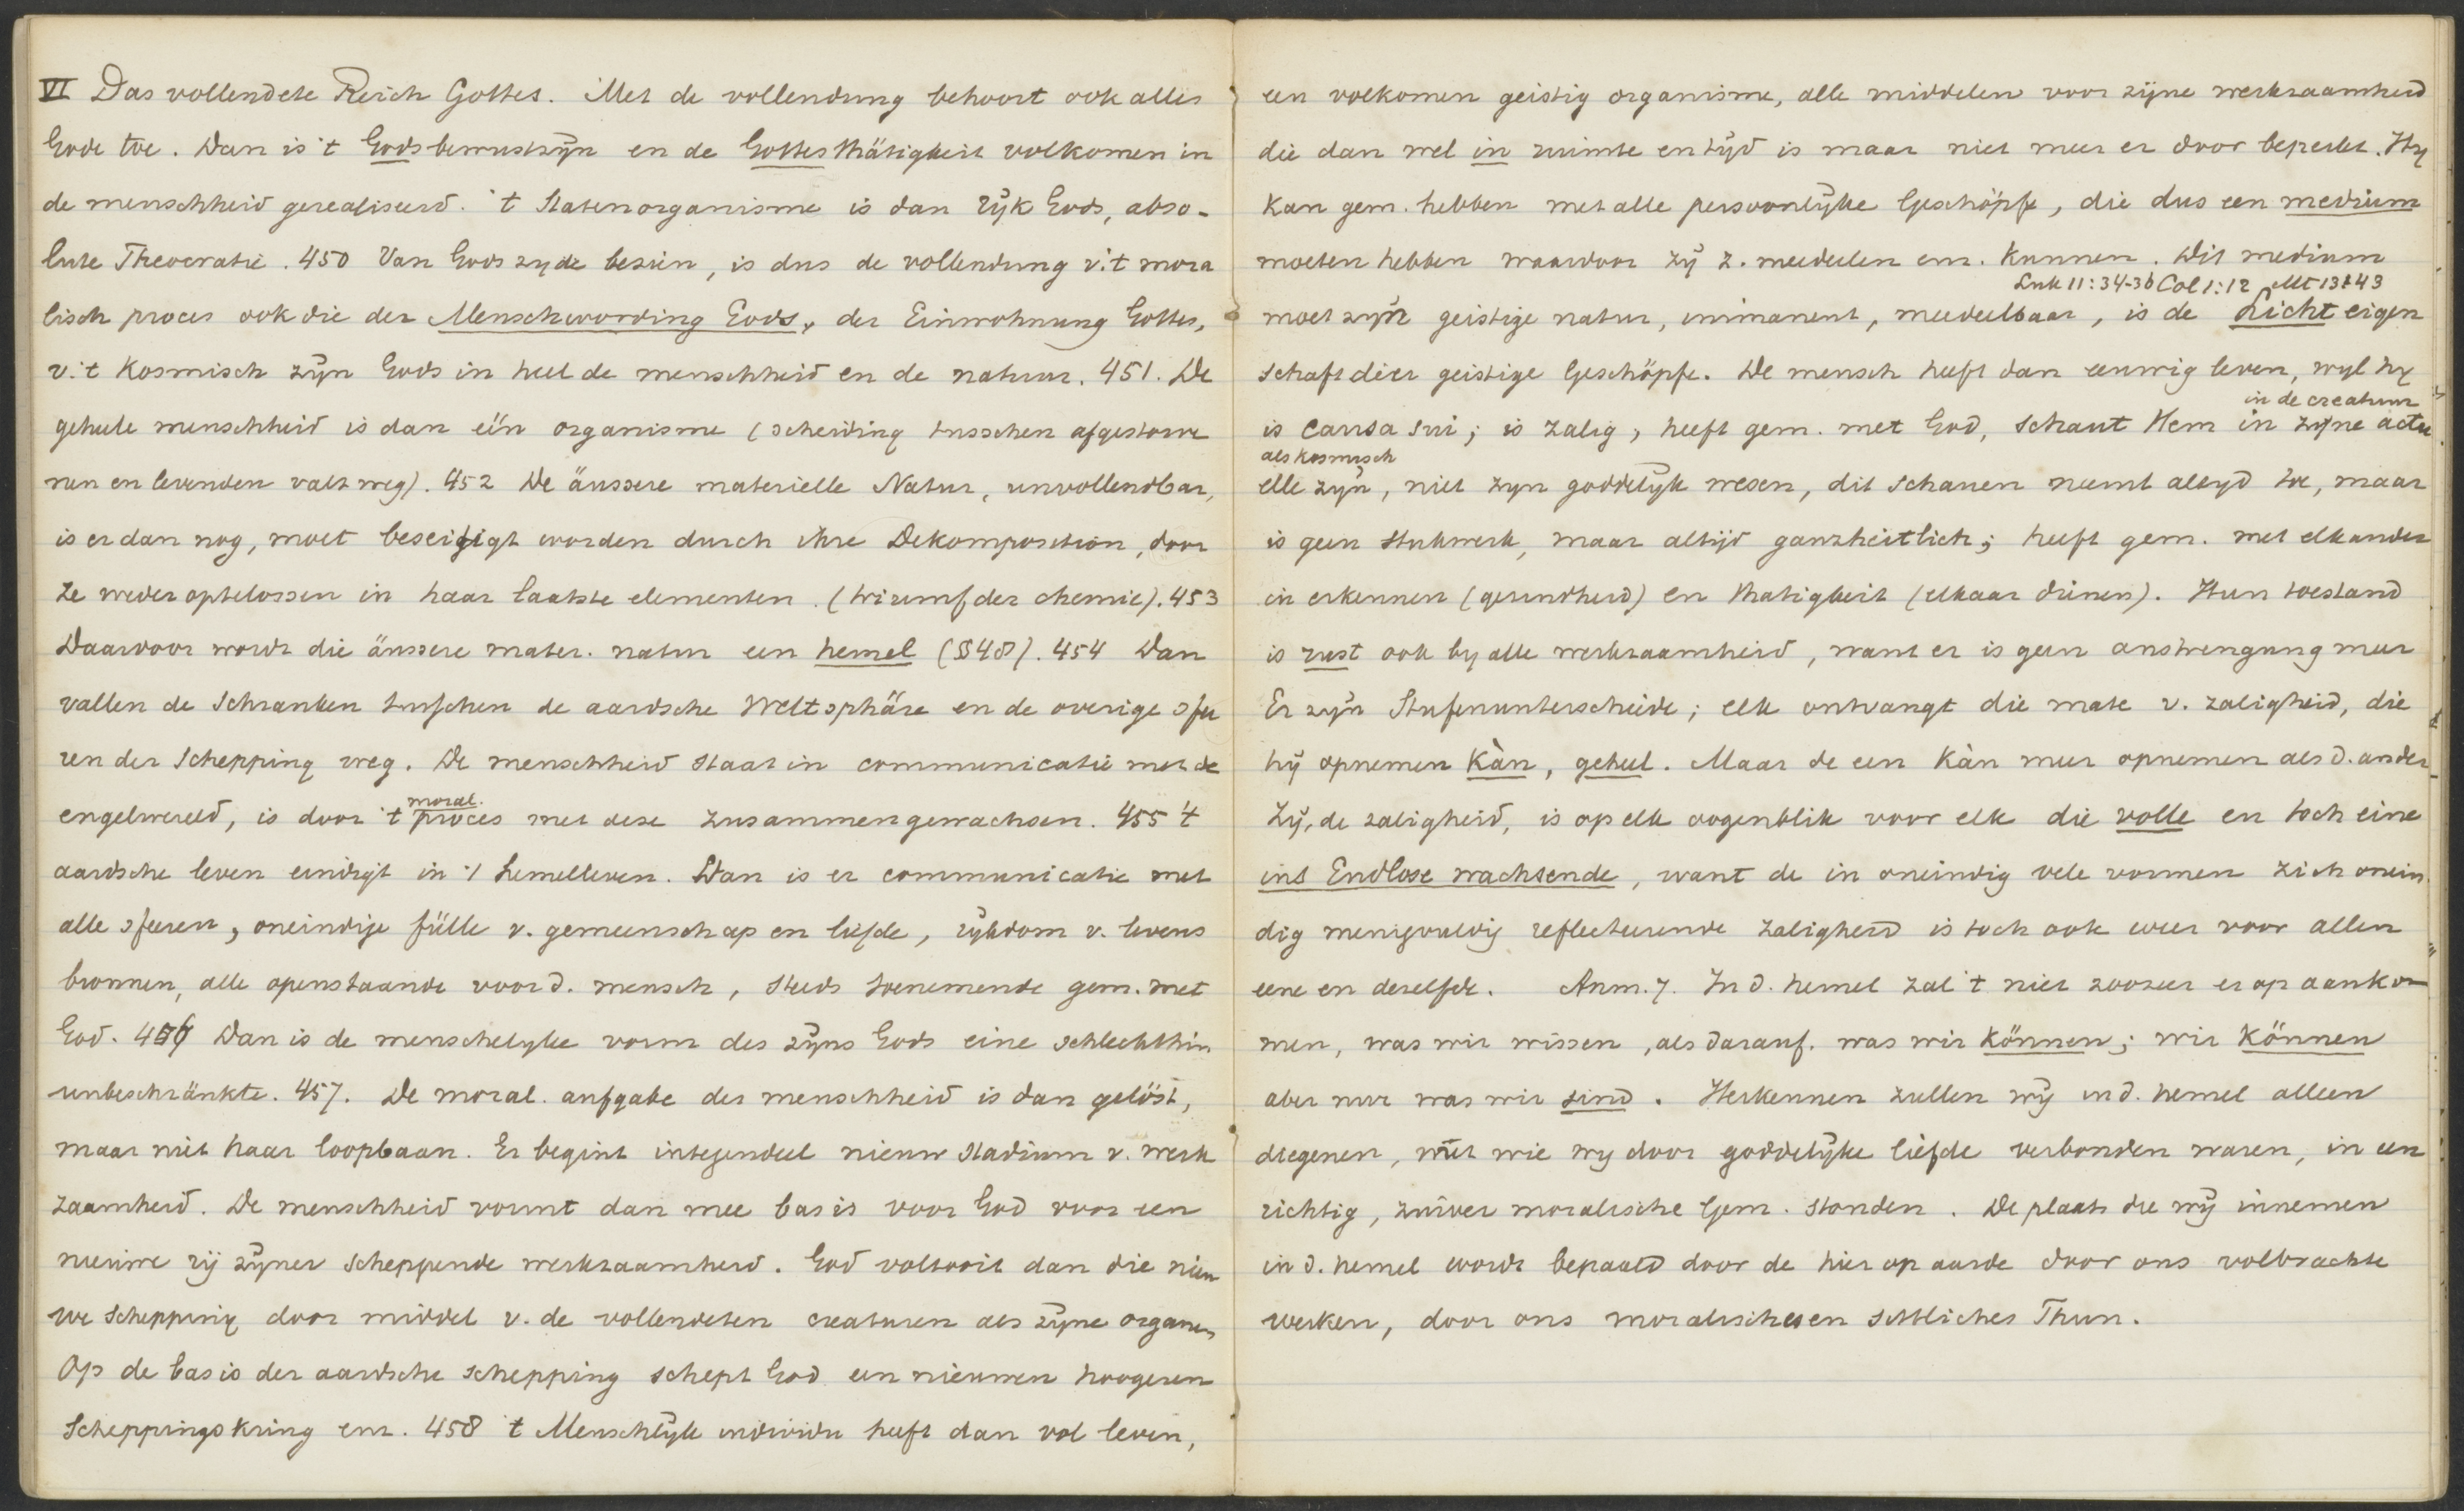 VI Das vollendete Reich Gottes. Met de vollendung behoort ook alles
Gode toe. Dan is 't Godsbewustzijn en de Gottesthätigkeit volkomen in
de menschheid gerealiseerd. 't Statenorganisme is dan rijk Gods, abso-
lute Theocratie. 450 Van Gods zyde bezien, is dus de vollendung v. 't mora
lisch proces ook die der Menschwording Gods, der Einwohnung Gottes,
v. 't Kosmisch zijn Gods in heel de menschheid en de natuur. 451. De
geheele menschheid is dan één organisme (scheiding tusschen afgestorve
nen en levenden valt weg). 452 De äussere materielle Natur, unvollendbar,
is er dan nog, moet beseitigt worden durch ihre Dekomposition, door
ze weder optelossen in haar laatste elementen. (triumf der chemie). 453
Daardoor wordt die äussere mater. natur een hemel (§§48). 454 Dan
vallen de Schranken tusschen de aardsche Weltsphäre en de overige sfe
ren der Schepping weg. De menschheid staat in communicatie met de
moral.
engelwereld, is door 't proces met deze zusammengewachsen. 455 't
aardsche leven eindigt in 't hemelleven. Dan is er communicatie met
alle sferen, oneindige fülle v. gemeenschap en liefde, rijkdom v. levens
bronnen, alle openstaande voor d. mensch, steeds toenemende gem. met
God. 456 Dan is de menschelyke vorm des zijns Gods eine schlechthin
unbeschränkte. 457. De moral. aufgabe der menschheid is dan gelöst,
maar niet haar loopbaan. Er begint integendeel nieuw stadium v. werk
zaamheid. De menschheid vormt dan mee basis voor God voor een
nieuwe rij zijner scheppende werkzaamheid. God voltooit dan die nieu
we schepping door middel v. de vollendeten creaturen als zijne organen
Op de basis der aardsche schepping schept God een nieuwen hoogeren
Scheppingskring enz. 458 't Menschlijk individu heeft dan vol leven,
een volkomen geistig organisme, alle middelen voor zijne werkzaamheid
die dan wel in ruimte en tijd is maar niet meer er door beperkt. Hy
kan gem. hebben met alle persoonlijke Geschöpfe, die dus een medium
moeten hebben waardoor zij z. mededeelen enz. kunnen. Dit medium
Luk 11:34-36 Col 1:12 Mt 13:43
moet zijn geistige natur, immanent, meedeelbaar, is de Licht eigen
schaft dier geistige Geschöpfe. De mensch heeft dan eeuwig leven, wyl hy
in de creatuur
is causa sui; is zalig, heeft gem. met God, schaut Hem in zijne actu
als kosmisch
elle zijn, niet zyn goddelijk wesen, dit schauen neemt altyd toe, maar
is geen stukwerk, maar altijd ganzheitlich; heeft gem. met elkander
in erkennen (gesundheid) en thatigkeit (elkaar dienen). Hun toestand
is rust ook by alle werkzaamheid, want er is geen anstrengung meer
Er zijn Stufenunterschiede; elk ontvangt die mate v. zaligheid, die
hij opnemen kàn, geheel. Maar de een kàn meer opnemen als d. ander
Zij, de zaligheid, is op elk oogenblik voor elk die volle en toch eine
ins Endlose wachsende, want de in oneindig vele vormen zich onein
dig menigvuldig reflecteerende zaligheid is toch ook weer voor allen
eene en dezelfde. Anm. 7. In d. hemel zal 't niet zoozeer er op aanko
men, was wir wissen, als darauf. was wir können; wir können
aber nur was wir sind. Herkennen zullen wij in d. hemel alleen
diegenen, met wie wy door goddelijke liefde verbonden waren, in een
richtig, zuiver moralische Gem. stonden. De plaats die wij innemen
in d. hemel wordt bepaald door de hier op aarde door ons volbrachte
werken, door ons moralisches en sittliches Thun.